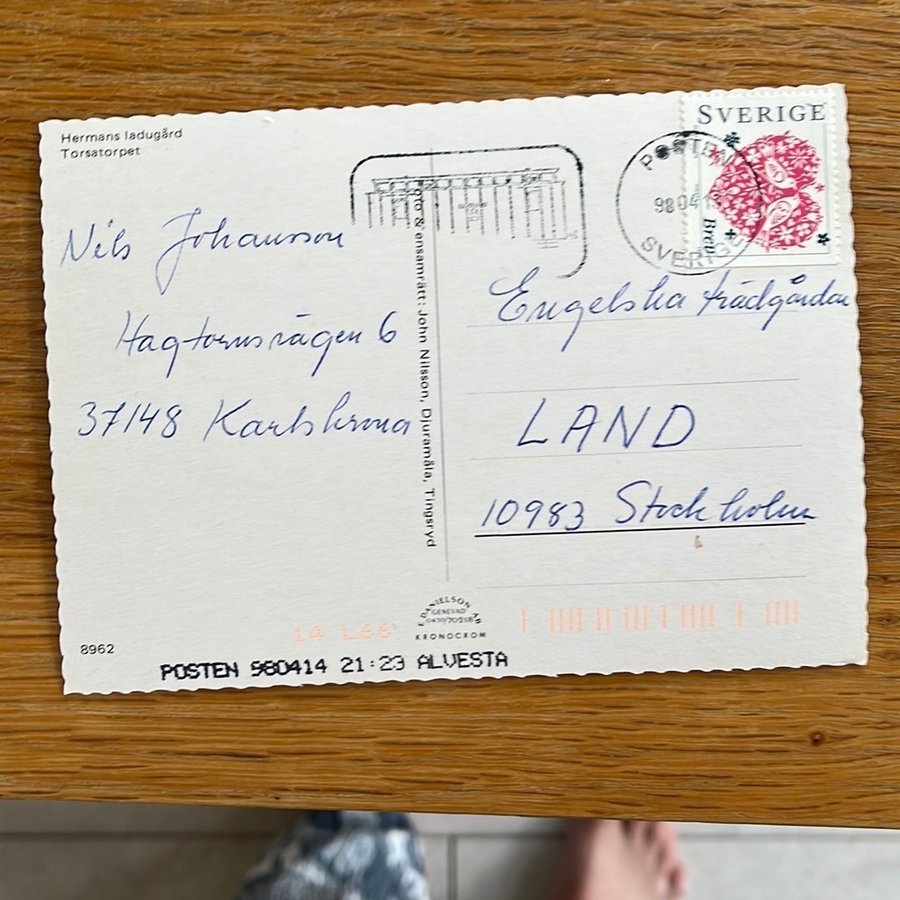 Hermans ladugård
Torsatorpet
SVERIGE
Brev
POSTEN
980414
SVERIGE
Nils Johansson
Hagtornsvägen 6
37148 Karlskrona
Foto & ensamrätt: John Nilsson, Djuramåla, Tingsryd
Engelska trädgården
LAND
10983 Stockholm
DANIELSON
GENEVAD
0430/70218
KRONOCROM
8962
POSTEN 980414 21:23 ALVESTA